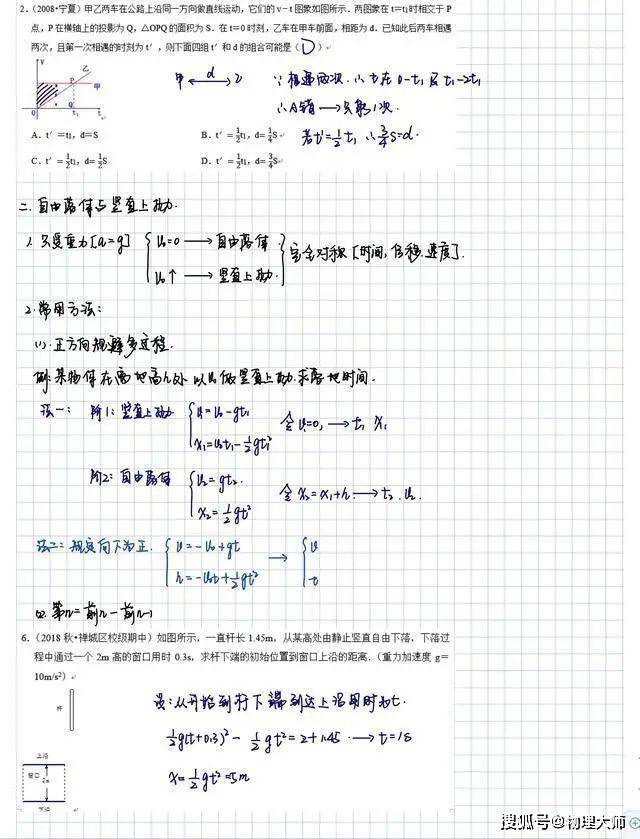 2.(2008•宁夏)甲乙两车在公路上沿同一方向做直线运动,它们的v-t图象如图所示.两图象在t=t₁时相交于P
点,P在横轴上的投影为Q,△OPQ的面积为S.在t=0时刻,乙车在甲车前面,相距为d.已知此后两车相遇
两次,且第一次相遇的时刻为t′,则下面四组t′和d的组合可能是(D)
v 乙 P 甲 O Q t₁ t
甲 d 乙
∵相遇两次.∴t′在0-t₁及t₁-2t₁
∴A错→只能1次.
A.t′=t₁,d=S B.t′=½t₁,d=¼S
若t′=½t₁ ∴¾S=d.
C.t′=½t₁,d=½S D.t′=½t₁,d=¾S
二.自由落体与竖直上抛.
1.只受重力[a=g] { v₀=0→自由落体
v₀↑→竖直上抛 } 完全对称[时间,位移.速度].
2.常用方法:
(1).正方向规解多过程.
例:某物体在离地高h处以v₀做竖直上抛.求落地时间.
法一: 阶1:竖直上抛 { v=v₀-gt₁
x₁=v₀t₁-½gt₁² 令v=0,→t₁ x₁
阶2:自由落体 { v₂=gt₂.
x₂=½gt² 令x₂=x₁+h→t₂.v₂.
法二:规定向下为正. { v=-v₀+gt
h=-v₀t+½gt² → { v
t
(2).第n=前n-前n-1
6.(2018秋•禅城区校级期中)如图所示,一直杆长1.45m,从某高处由静止竖直自由下落,下落过
程中通过一个2m高的窗口用时0.3s,求杆下端的初始位置到窗口上沿的距离.(重力加速度g=
10m/s²)
杆
设:从开始到杆下端到达上沿用时为t.
½g(t+0.3)²-½gt²=2+1.45→t=1s
x=½gt²=5m
上沿
窗口 2m
下沿
搜狐号@物理大师